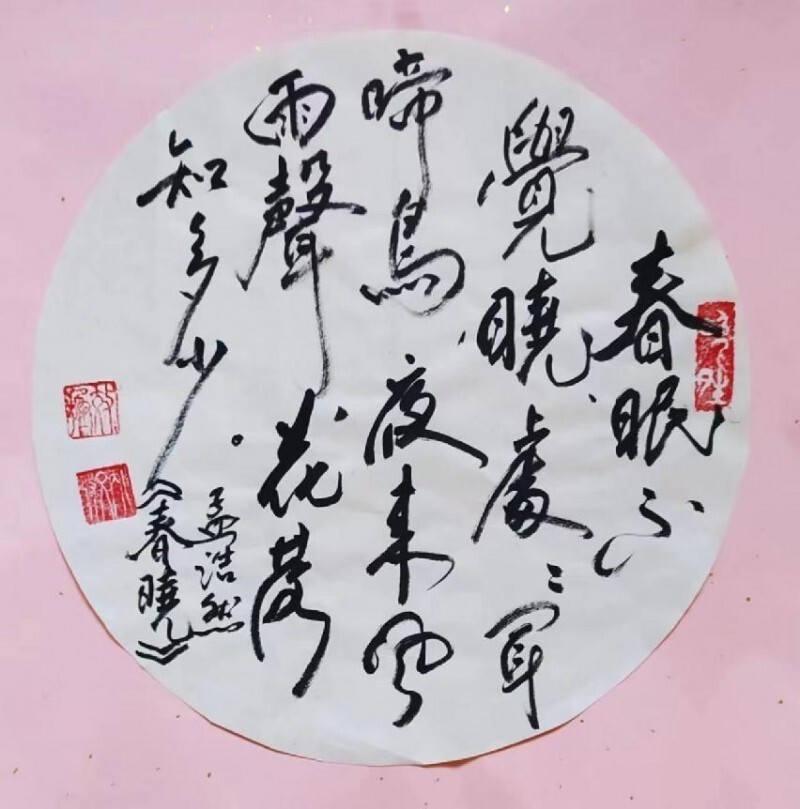 春眠不
覺曉處〻聞
啼鳥夜来風
雨聲花落
知多少。
孟浩然
《春曉》